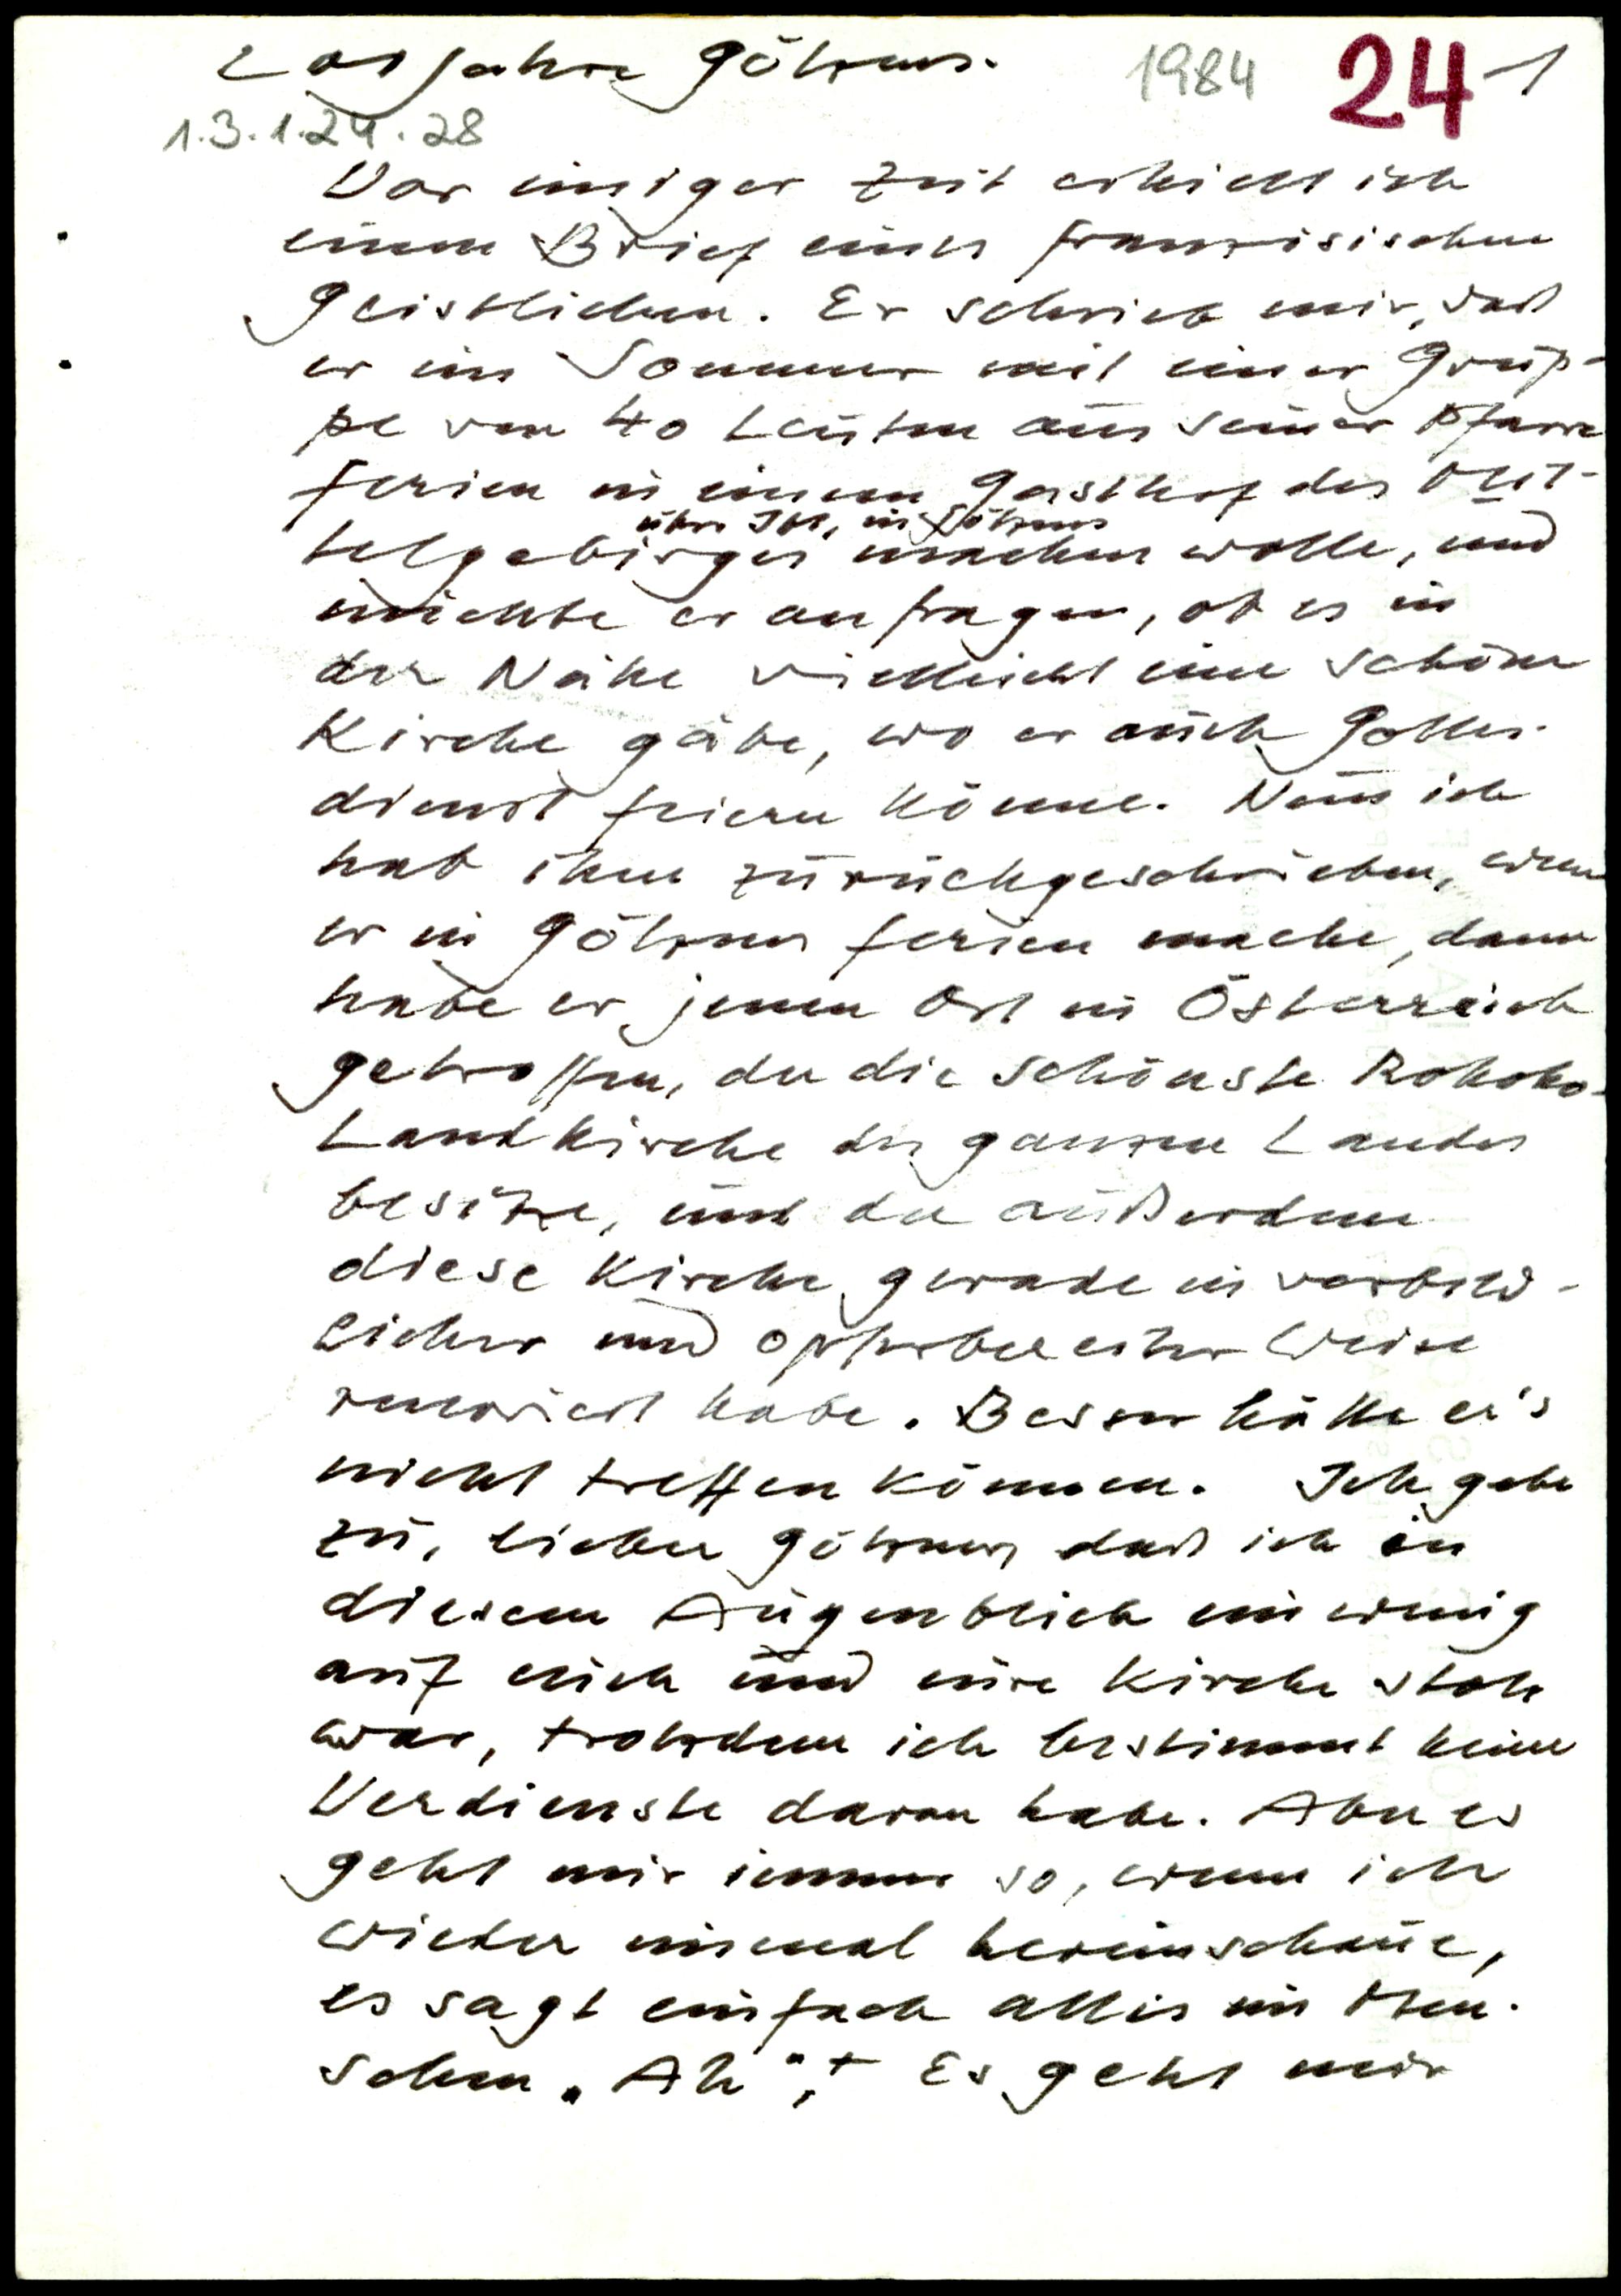 Jahre Götzens. 1984 24 -1
1.3.1.24.28
Vor einiger Zeit erhielt ich
einen Brief eines französischen
Geistlichen. Er schrieb mir, daß
er im Sommer mit einer Grup-
pe von 40 Leuten aus seiner Pfarre
Ferien in einem Gasthof des Mit-
übers Jhr, in Götzens
telgebirges machen wolle, und
möchte er anfragen, ob es in
der Nähe vielleicht eine schöne
Kirche gäbe, wo er auch Gottes-
dienst feiern könne. Nun ich
hab ihm zurückgeschrieben, wenn
er in Götzens Ferien mache, dann
habe er jenen Ort in Österreich
getroffen, der die schönste Rokoko-
Landkirche des ganzen Landes
besitze, und der außerdem
diese Kirche gerade in vorbild-
licher und opferbereiter Weise
renoviert habe. Besser hätte er's
nicht treffen können. Ich gebe
zu, liebe Götzner, daß ich in
diesem Augenblick ein wenig
auf euch und eure Kirche stolz
war, trotzdem ich bestimmt keine
Verdienste daran habe. Aber es
geht mir immer so, wenn ich
wieder einmal hereinschaue,
es sagt einfach alles im Men-
schen „Ah", + Es geht mir